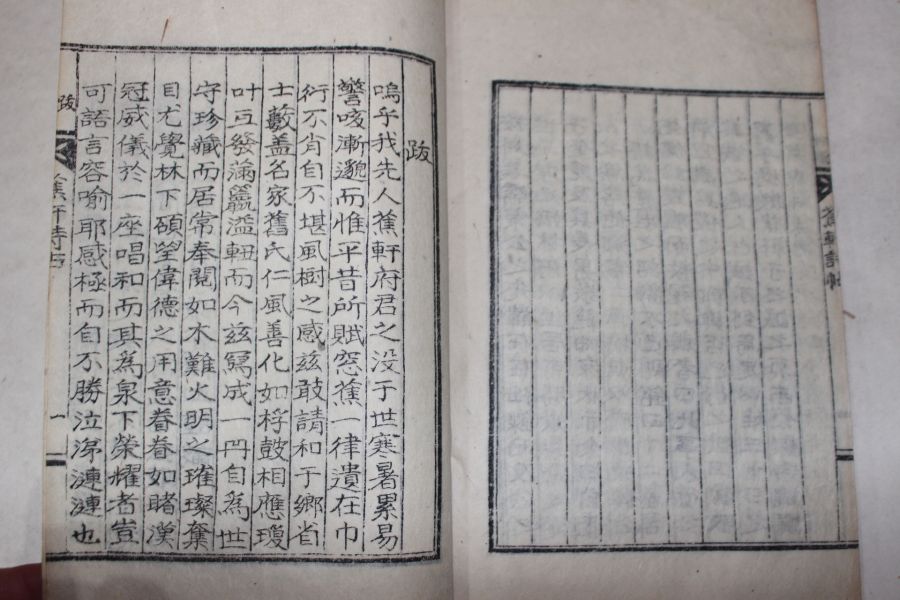 跋
嗚乎我先人蕉軒府君之没于世寒暑累易
謦咳漸邈而惟平昔所賦怨蕉一律遺在巾
衍不肖自不堪風樹之感玆敢請和于鄉省
士藪盖名家舊氏仁風善化如桴鼓相應瓊
叶亙發滿籯溢軒而今玆寫成一冊自為世
守珍藏而居常奉閱如木難火明之璀璨奪
目尤覺林下碩望偉德之用意眷眷如睹漢
冠威儀於一座唱和而其為泉下榮耀者豈
可語言容喻耶感極而自不勝泣涕漣漣也
跋
蕉軒詩帖
一
蕉軒詩帖